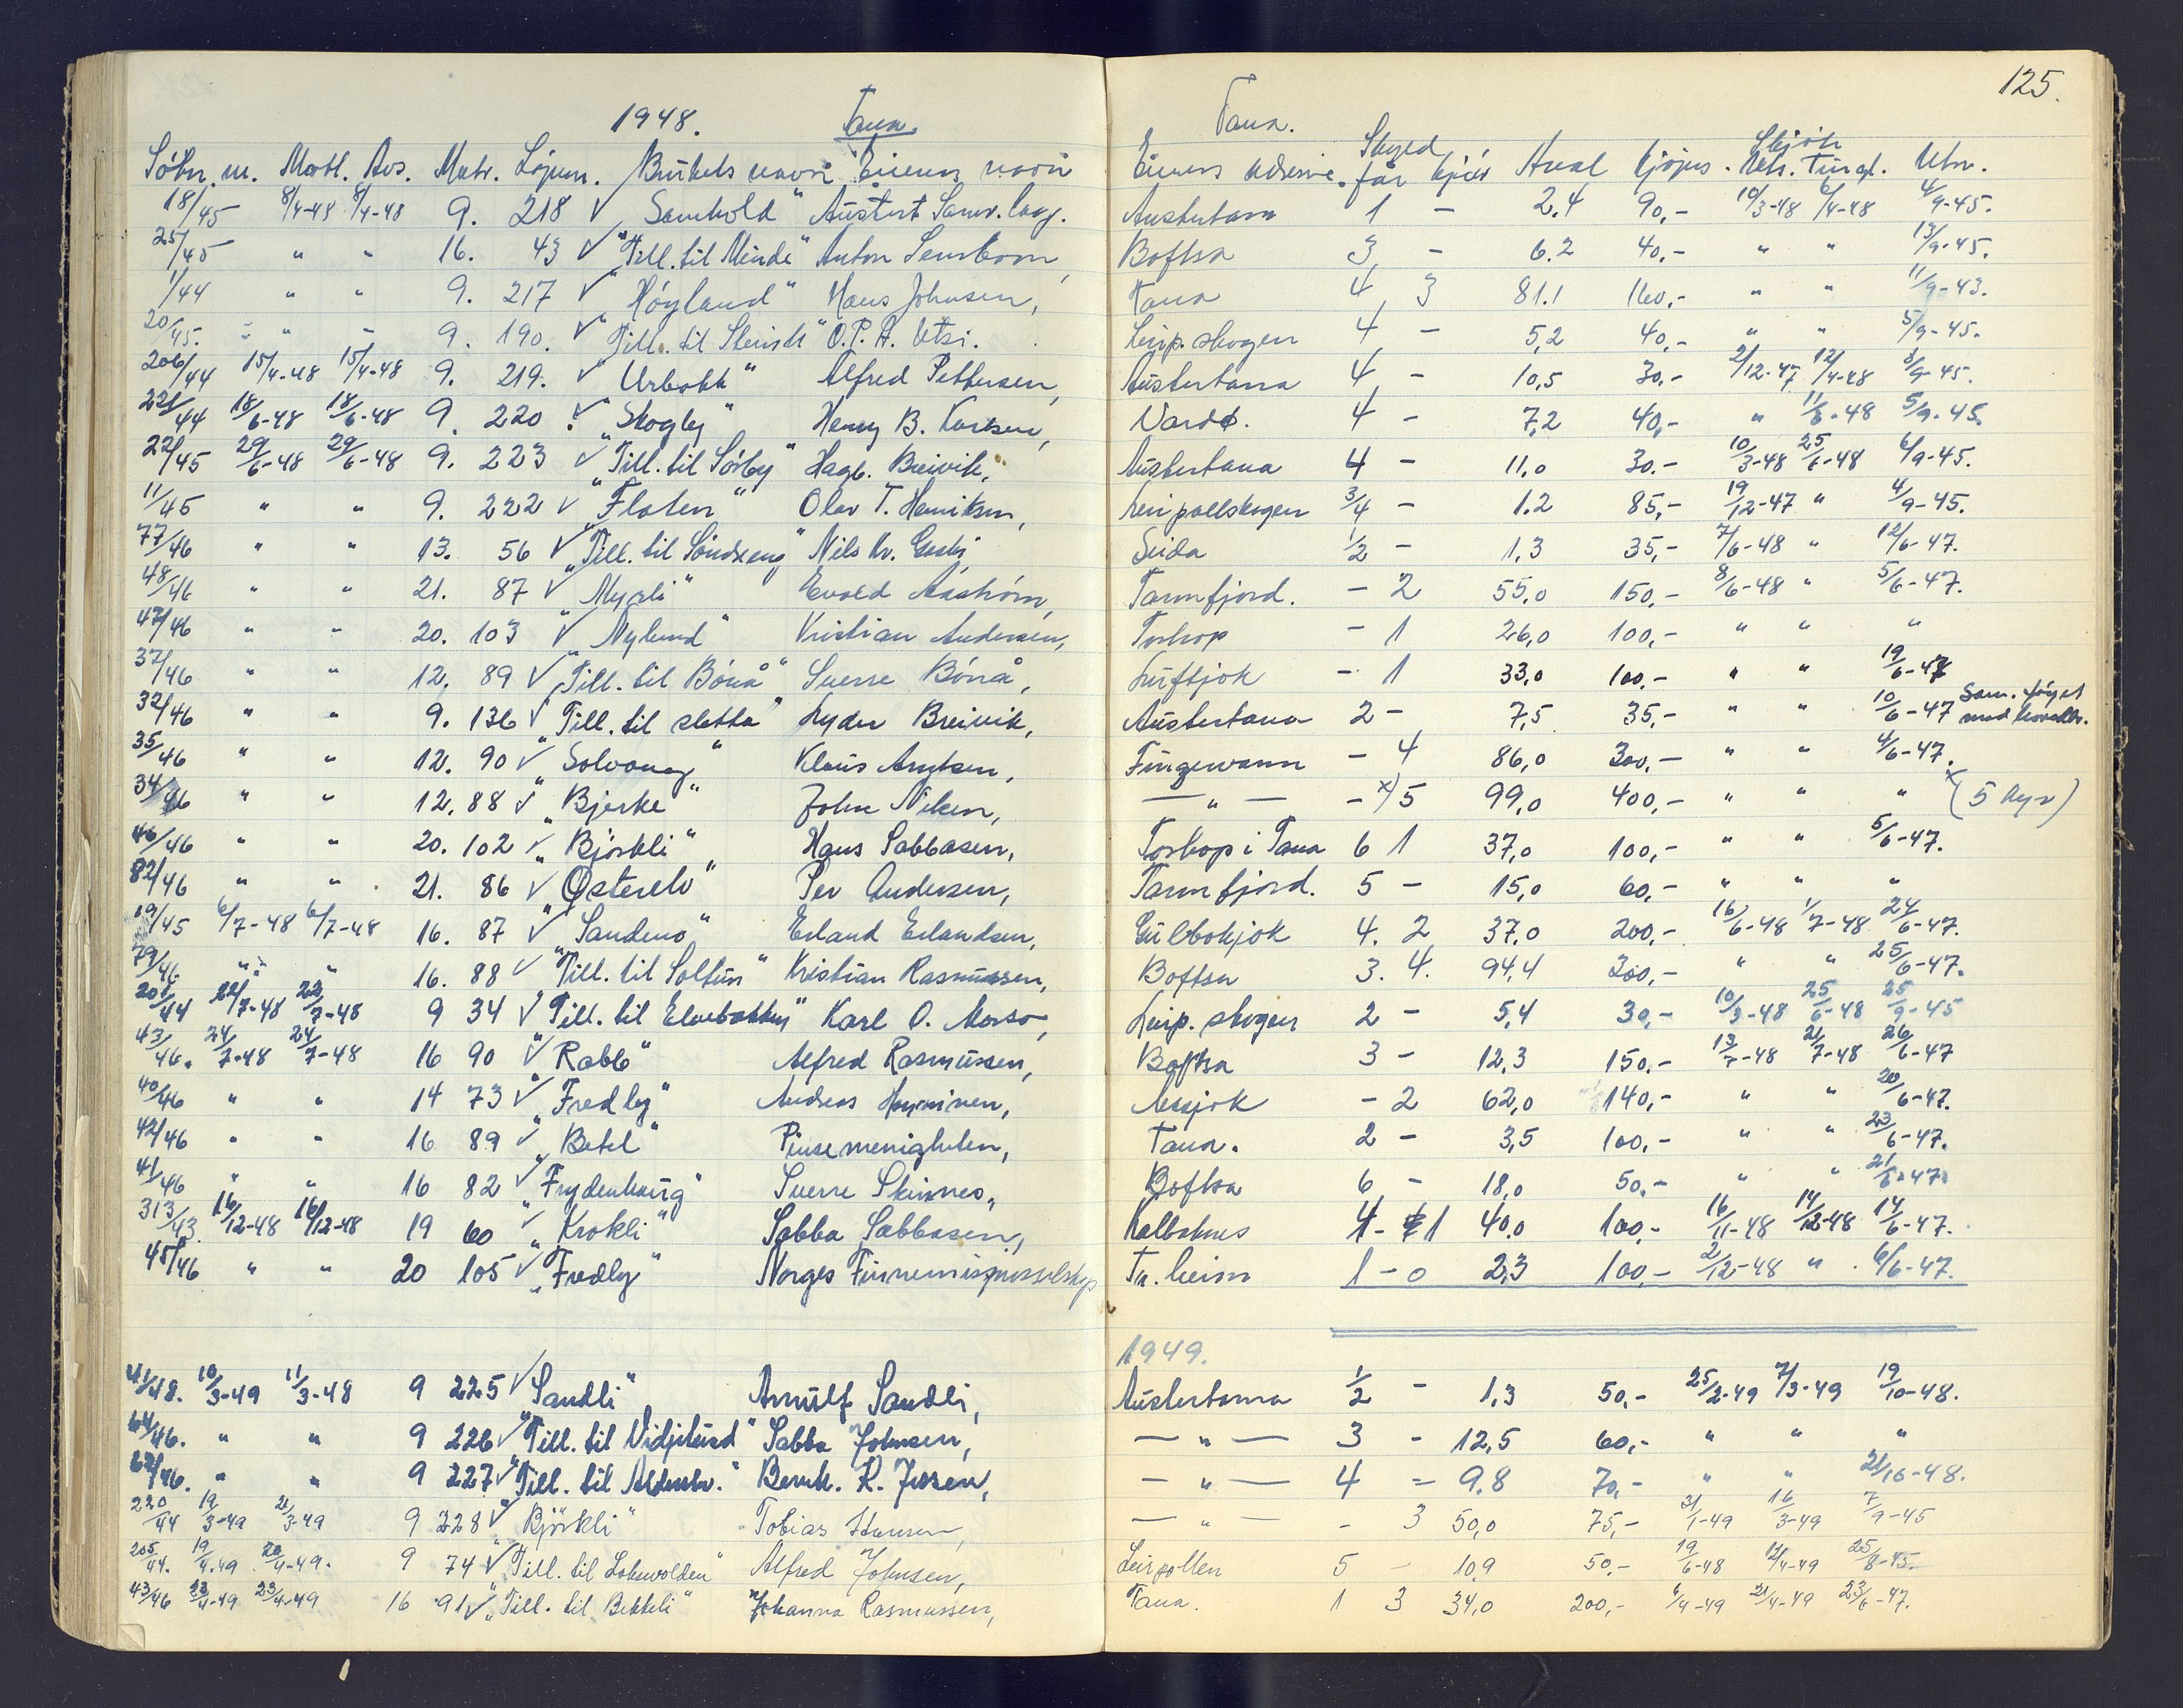 125.
1948. Tana. Tana.
Söbn. m. Mott. Avs. Matr. Löpnr. Brukets navn Eierens navn Eierens adresse. Skyld før kjöv Areal kjöpes. Skjöte Uts. Tingl. Utm.
18/45 8/4-48 8/4-48 9. 218 ✓ „Samhold" Austert. Samv.lag. Austertana 1 - 2.4 90,- 10/3-48 6/4-48 4/9-45.
25/45 " " 16. 43 ✓ „Till. til Minde" Anton Boftsa 3 - 6.2 40,- " " 13/9-45.
1/44 " " 9. 217 ✓ „Höyland" Hans Johnsen, Tana 4 3 81.1 160,- " " 11/9-43.
20/45. " " 9. 190. ✓ „Till. til O.P.A. Utsi. Leirp.skogen 4 - 5,2 40,- " " 5/9-45.
206/44 15/4-48 15/4-48 9. 219. ✓ „Urbakk" Alfred Pettersen, Austertana 4 - 10,5 30,- 2/12-47 12/4-48 8/9-45.
221/44 18/6-48 18/6-48 9. 220 ✓ „Skogly" Henry B. Karlsen, Vardø. 4 - 7,2 40,- " 11/6-48 5/9-45.
22/45 29/6-48 29/6-48 9. 223 ✓ „Till. til Sörby" Hagb. Breivik, Austertana 4 - 11,0 30.- 10/3-48 25/6-48 6/9-45.
11/45 " " 9. 222 ✓ „Flaten" Olav T. Henriksen, Leirpollskogen 3/4 - 1.2 85,- 19/12-47 " 4/9-45.
77/46 " " 13. 56 ✓ „Till. til Söndreeng" Nils Kr. Seida 1/2 - 1,3 35,- 7/6-48 " 12/6-47.
48/46 " " 21. 87 ✓ „Myrli" Evald Åström, Tarmfjord. - 2 55,0 150,- 8/6-48 " 5/6-47.
47/46 " " 20. 103 ✓ „Nylund" Kristian Andersen, Torhop - 1 26,0 100,- " " "
37/46 " " 12. 89 ✓ „Till. til Bönå" Sverre Bönå, Luftjok - 1 33,0 100.- " " 19/6-47
32/46 " " 9. 136 ✓ „Till. til sletta" Lyder Breivik, Austertana 2 - 7,5 35,- " " 10/6-47 Sam. föyet med hovedbr.
35/46 " " 12. 90 ✓ „Solvang" Klaus Arntsen, Fingervann - 4 86,0 300,- " " 4/6-47.
34/46 " " 12. 88 ✓ „Bjerke" John Nilsen, — " — - x) 5 99,0 400,- " " " x (5 Kyr)
46/46 " " 20. 102 ✓ „Björkli" Hans Sabbasen, Torhop i Tana 6 1 37,0 100,- " " 5/6-47.
82/46 " " 21. 86 ✓ „Österelv" Per Andersen, Tarmfjord. 5 - 15,0 60,- " " "
19/45 6/7-48 6/7-48 16. 87 ✓ „Sandmo" Erland Erlandsen, Gulbokjok 4. 2 37,0 200,- 16/6-48 1/7-48 24/6-47.
79/46 " " 16. 88 ✓ „Till. til Soltun" Kristian Rasmussen, Boftsa 3. 4. 94,4 300,- " " 25/6-47.
201/44 22/7-48 22/7-48 9 34 ✓ „Till. til Elvebakken" Karl O. Morso, Leirp. skogen 2 - 5,4 30,- 10/3-48 25/6-48 25/9-45
43/46. 24/7-48 24/7-48 16 90 ✓ „Rabb" Alfred Rasmussen, Boftsa 3 - 12,3 150,- 13/7-48 21/7-48 26/6-47
40/46 " " 14 73 ✓ „Fredly" Andreas Hyvinen, Masjok - 2 62,0 140,- " " 20/6-47.
42/46 " " 16 89 ✓ „Betel" Pinsemenigheten, Tana. 2 - 3,5 100,- " " 23/6-47.
41/46 " " 16 82 ✓ „Frydenhaug" Sverre Steinnes, Boftsa 6 - 18,0 50,- " " 21/6-47.
313/43. 16/12-48 16/12-48 19 60 ✓ „Krokli" Sabba Sabbasen, Kalbaknes 4 - 1 40.0 100,- 16/11-48 14/12-48 14/6-47.
45/46 " " 20 105 ✓ „Fredly" Norges Finnemisjonsselskap Tr. heim 1 - 0 2,3 100,- 2/12-48 " 6/6-47.
1949.
41/48. 10/3-49 11/3-48 9 225 ✓ „Sandli" Arnulf Sandli, Austertana 1/2 - 1,3 50,- 25/2-49 7/3-49 19/10-48.
64/46. " " 9 226 ✓ „Till. til Vidjelund" Sabba Johnsen, — " — 3 - 12,5 60,- " " "
62/46. " " 9 227 ✓ „Till. til Aldersbr." Bernh. R. Jessen, — " — 4 - 9.8 70,- " " 21/10-48.
220/44 19/3-49 21/3-49 9 228 ✓ „Björkli" Tobias Hansen, — " — - 3 50,0 75,- 31/1-49 16/3-49 7/9-45
205/44. 19/4.49 20/4-49. 9 74 ✓ „Till. til Alfred Johnsen, Leirpollen 5 - 10.9 50.- 19/6-48 12/4-49 25/8-45.
43/46 23/4-49 23/4-49 16 91 ✓ „Till. til Bekkeli" Johanna Rasmussen, Tana. 1 3 34,0 200,- 6/4-49 21/4-49 23/6-47.